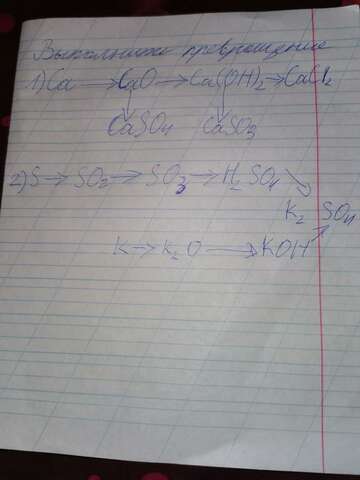 Выполнить превращение
1) Ca → CaO → Ca(OH)2 → CaCl2
↓ ↓
CaSO4 CaSO3
2) S → SO2 → SO3 → H2SO4 ↘
K2SO4
K → K2O → KOH ↗